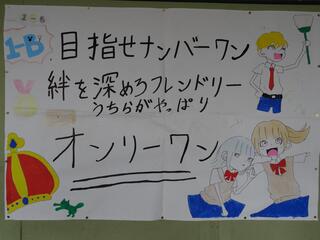 2-6
1-B
目指せナンバーワン
絆を深めろフレンドリー
うちらがやっぱり
オンリーワン